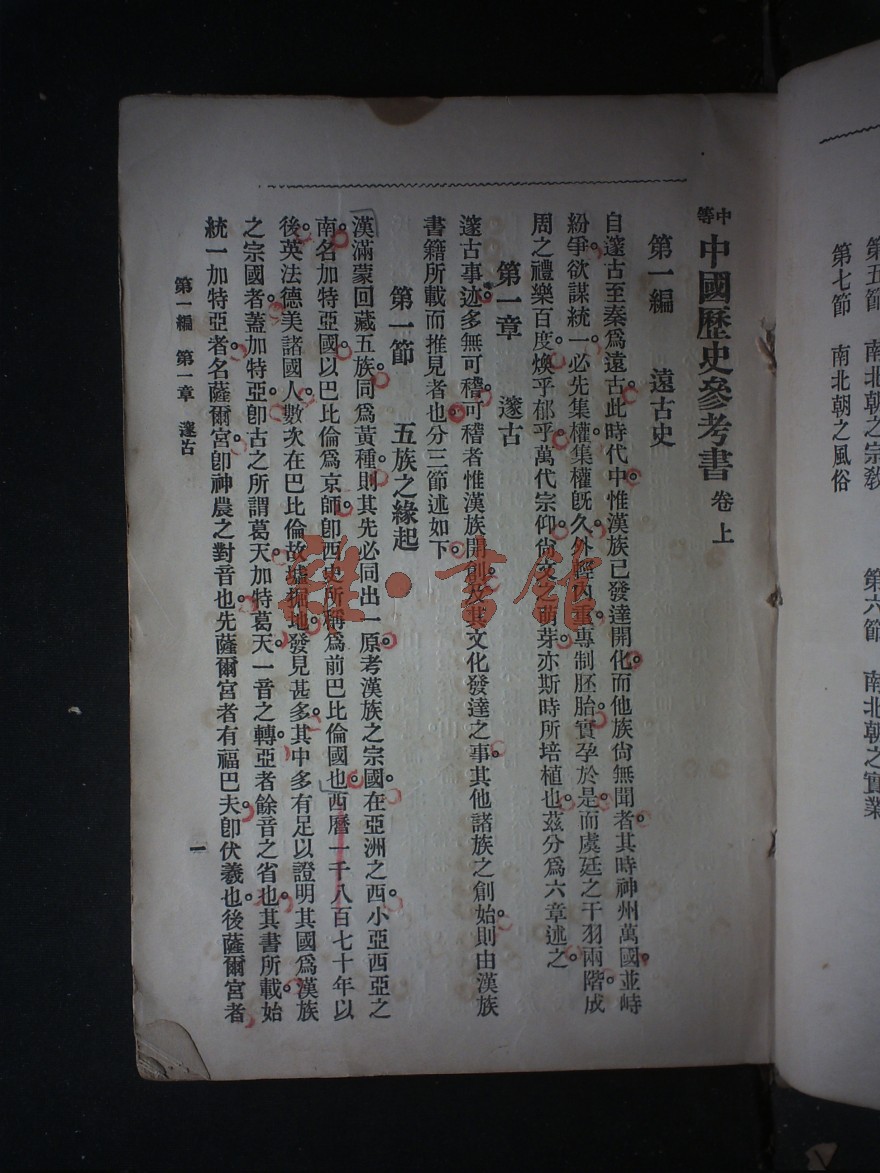 第五節　南北朝之宗敎　第六節　南北朝之實業
第七節　南北朝之風俗
中等中國歷史參考書 卷上
第一編　遠古史
自邃古至秦爲遠古。此時代中。惟漢族已發達開化。而他族尙無聞者。其時神州萬國並峙
紛爭。欲謀統一。必先集權。集權旣久。外輕內重。專制胚胎。實孕於是。而虞廷之干羽兩階。成
周之禮樂百度。煥乎郁乎。萬代宗仰。尙文之萌芽。亦斯時所培植也。茲分爲六章述之。
第一章　邃古
邃古事迹。多無可稽。可稽者惟漢族開創。及其文化發達之事。其他諸族之創始。則由漢族
書籍所載而推見者也。分三節述如下。
第一節　五族之緣起
漢滿蒙回藏五族。同爲黃種。則其先必同出一原。考漢族之宗國。在亞洲之西。小亞西亞之
南。名加特亞國。以巴比倫爲京師。卽西史所稱爲前巴比倫國也。西曆一千八百七十年以
後。英法德美諸國人。數次在巴比倫故墟掘地。發見甚多。其中多有足以證明其國爲漢族
之宗國者。蓋加特亞。卽古之所謂葛天。加特葛天。一音之轉。亞者餘音之省也。其書所載。始
統一加特亞者。名薩爾宮。卽神農之對音也。先薩爾宮者有福巴夫。卽伏羲也。後薩爾宮者
第一編　第一章　邃古
一
雜·書館